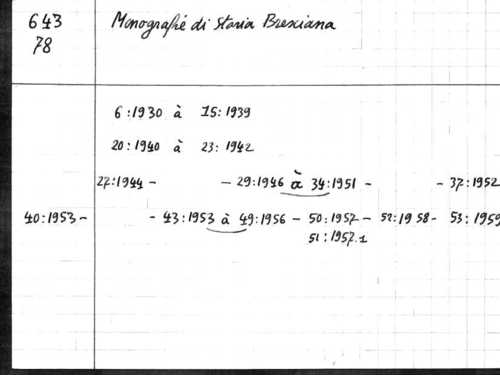 643 Monografie di Storia Bresciana
78
6:1930 à 15:1939
20:1940 à 23:1942
27:1944 - - 29:1946 à 34:1951 - - 37:1952
40:1953 - - 43:1953 à 49:1956 - 50:1957 - 52:1958 - 53:1959
51:1957.1